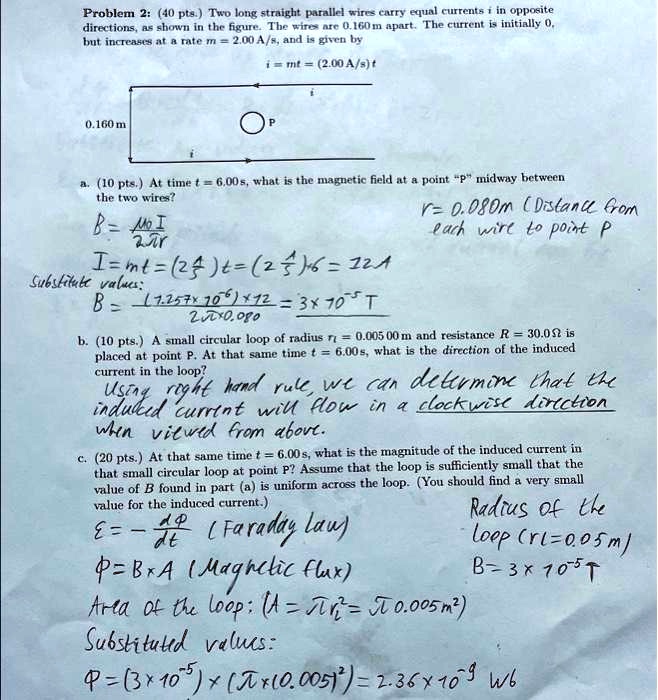 Problem 2: (40 pts.) Two long straight parallel wires carry equal currents i in opposite
directions, as shown in the figure. The wires are 0.160 m apart. The current is initially 0,
but increases at a rate m = 2.00 A/s, and is given by
i = mt = (2.00 A/s) t
i
0.160 m
P
i
a. (10 pts.) At time t = 6.00 s, what is the magnetic field at a point "P" midway between
the two wires?
r = 0.080m (Distance from
each wire to point P
B = μ0 I / 2πr
I = mt = (2 A/s) t = (2 A/s)×6 = 12A
Substitute values:
B = (1.257×10^-6)×12 / 2π×0.080 = 3×10^-5 T
b. (10 pts.) A small circular loop of radius r_l = 0.005 00 m and resistance R = 30.0 Ω is
placed at point P. At that same time t = 6.00 s, what is the direction of the induced
current in the loop?
Using right hand rule, we can determine that the
induced current will flow in a clockwise direction
when viewed from above.
c. (20 pts.) At that same time t = 6.00 s, what is the magnitude of the induced current in
that small circular loop at point P? Assume that the loop is sufficiently small that the
value of B found in part (a) is uniform across the loop. (You should find a very small
value for the induced current.)
Radius of the
loop (rl=0.05m)
B = 3×10^-5 T
ε = - dφ/dt (Faraday law)
φ = B×A (Magnetic flux)
Area of the loop: (A = πr_l^2 = π0.005m²)
Substituted values:
φ = (3×10^-5) × (π×(0.005)²) = 2.36×10^-9 Wb